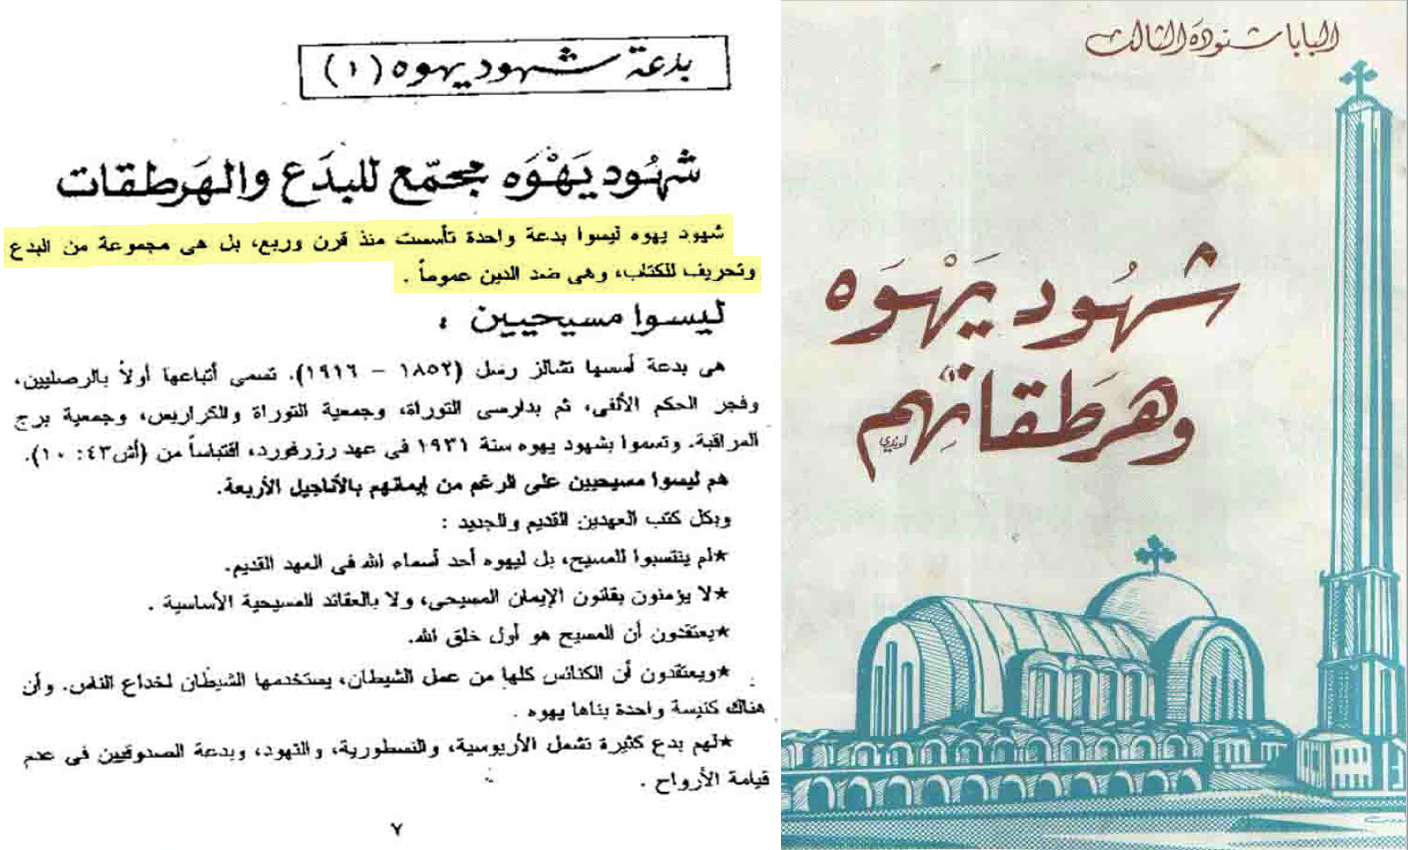 بدعة شهود يهوه (١)
شهُود يَهْوَه مجمّع للبدَع والهَرطقات
شهود يهوه ليسوا بدعة واحدة تأسست منذ قرن وربع، بل هى مجموعة من البدع
وتحريف للكتاب، وهى ضد الدين عموماً .
ليسوا مسيحيين :
هى بدعة أسسها تشالز رصل (١٨٥٢ – ١٩١٦). تسمى أتباعها أولاً بالرصليين،
وفجر الحكم الألفى، ثم بدارسى التوراة، وجمعية التوراة والكراريس، وجمعية برج
المراقبة. وتسموا بشهود يهوه سنة ١٩٣١ فى عهد رزرفورد، اقتباساً من (أش٤٣: ١٠).
هم ليسوا مسيحيين على الرغم من إيمانهم بالأناجيل الأربعة.
وبكل كتب العهدين القديم والجديد :
★لم ينتسبوا للمسيح، بل ليهوه أحد أسماء الله فى العهد القديم.
★لا يؤمنون بقانون الإيمان المسيحى، ولا بالعقائد المسيحية الأساسية .
★يعتقدون أن المسيح هو أول خلق الله.
★ويعتقدون أن الكنائس كلها من عمل الشيطان، يستخدمها الشيطان لخداع الناس. وأن
هناك كنيسة واحدة بناها يهوه .
★لهم بدع كثيرة تشمل الأريوسية، والنسطورية، والتهود، وبدعة الصدوقيين فى عدم
قيامة الأرواح .
٧
البابا شنوده الثالث
شهُود يَهْوَه
وهرَطقاتهم